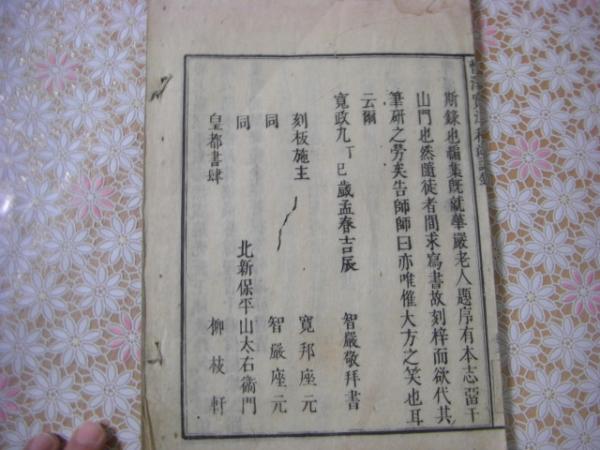 斯錄也編集既就華嚴老人題序有本志留于
山門也然隨徒者間求寫書故刻梓而欲代其
筆研之勞矣告師師曰亦唯催大方之笑也耳
云爾
寬政九丁巳歲孟春吉辰　智嚴敬拜書
刻板施主　寬邦座元
同　智嚴座元
同　北新保平山太右衞門
皇都書肆　柳枝軒